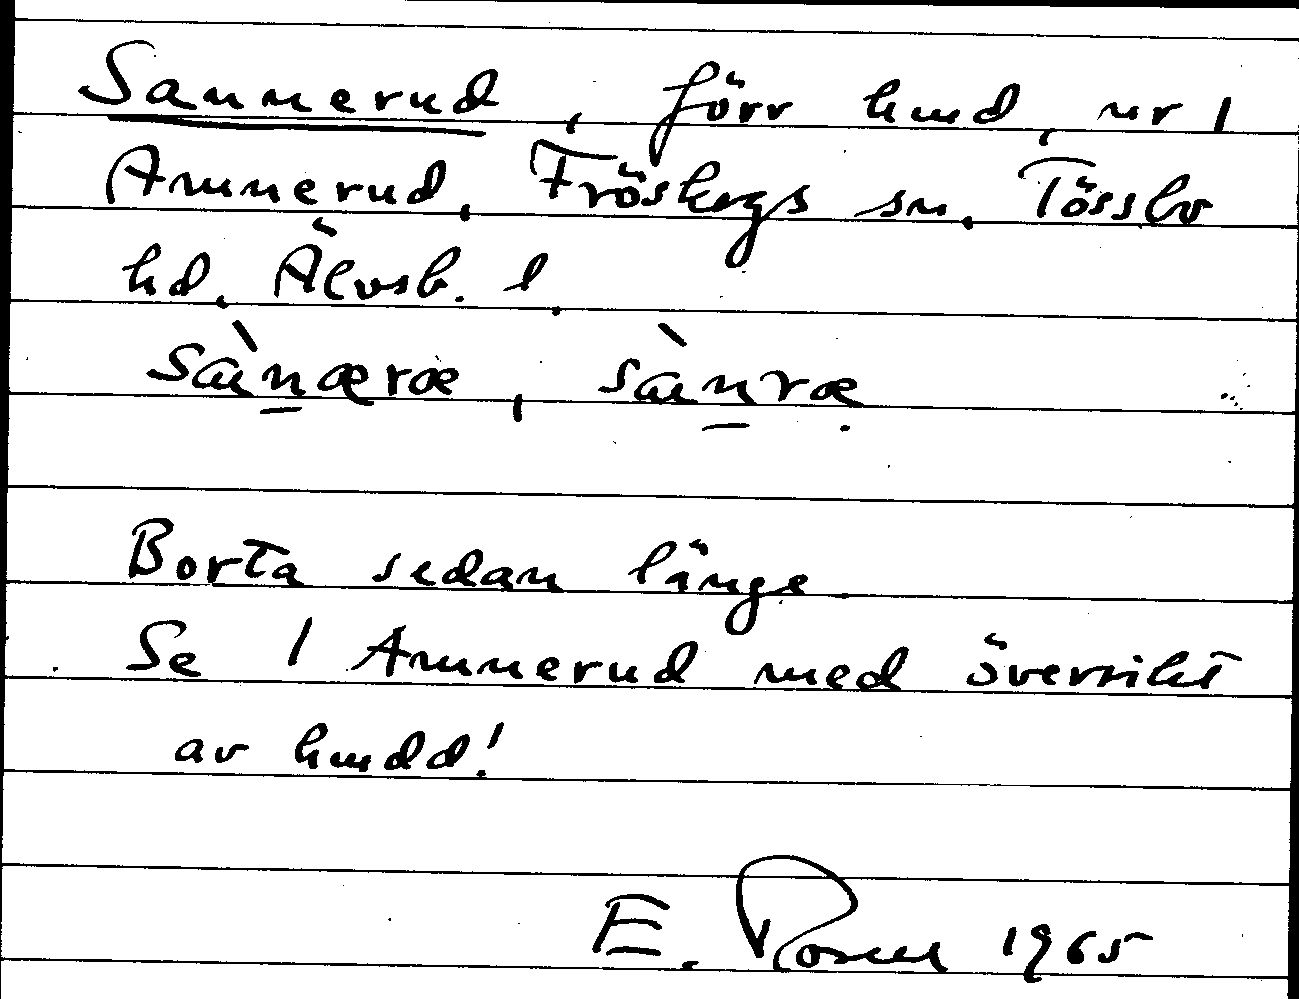 Sannerud, förr hmd, nr 1
Ammerud, Fröskogs sn. Tössbo
hd. Älvsb. l.
sànæræ, sànræ
Borta sedan länge.
Se 1 Ammerud med översikt
av hmdd!
E. Rosell 1965